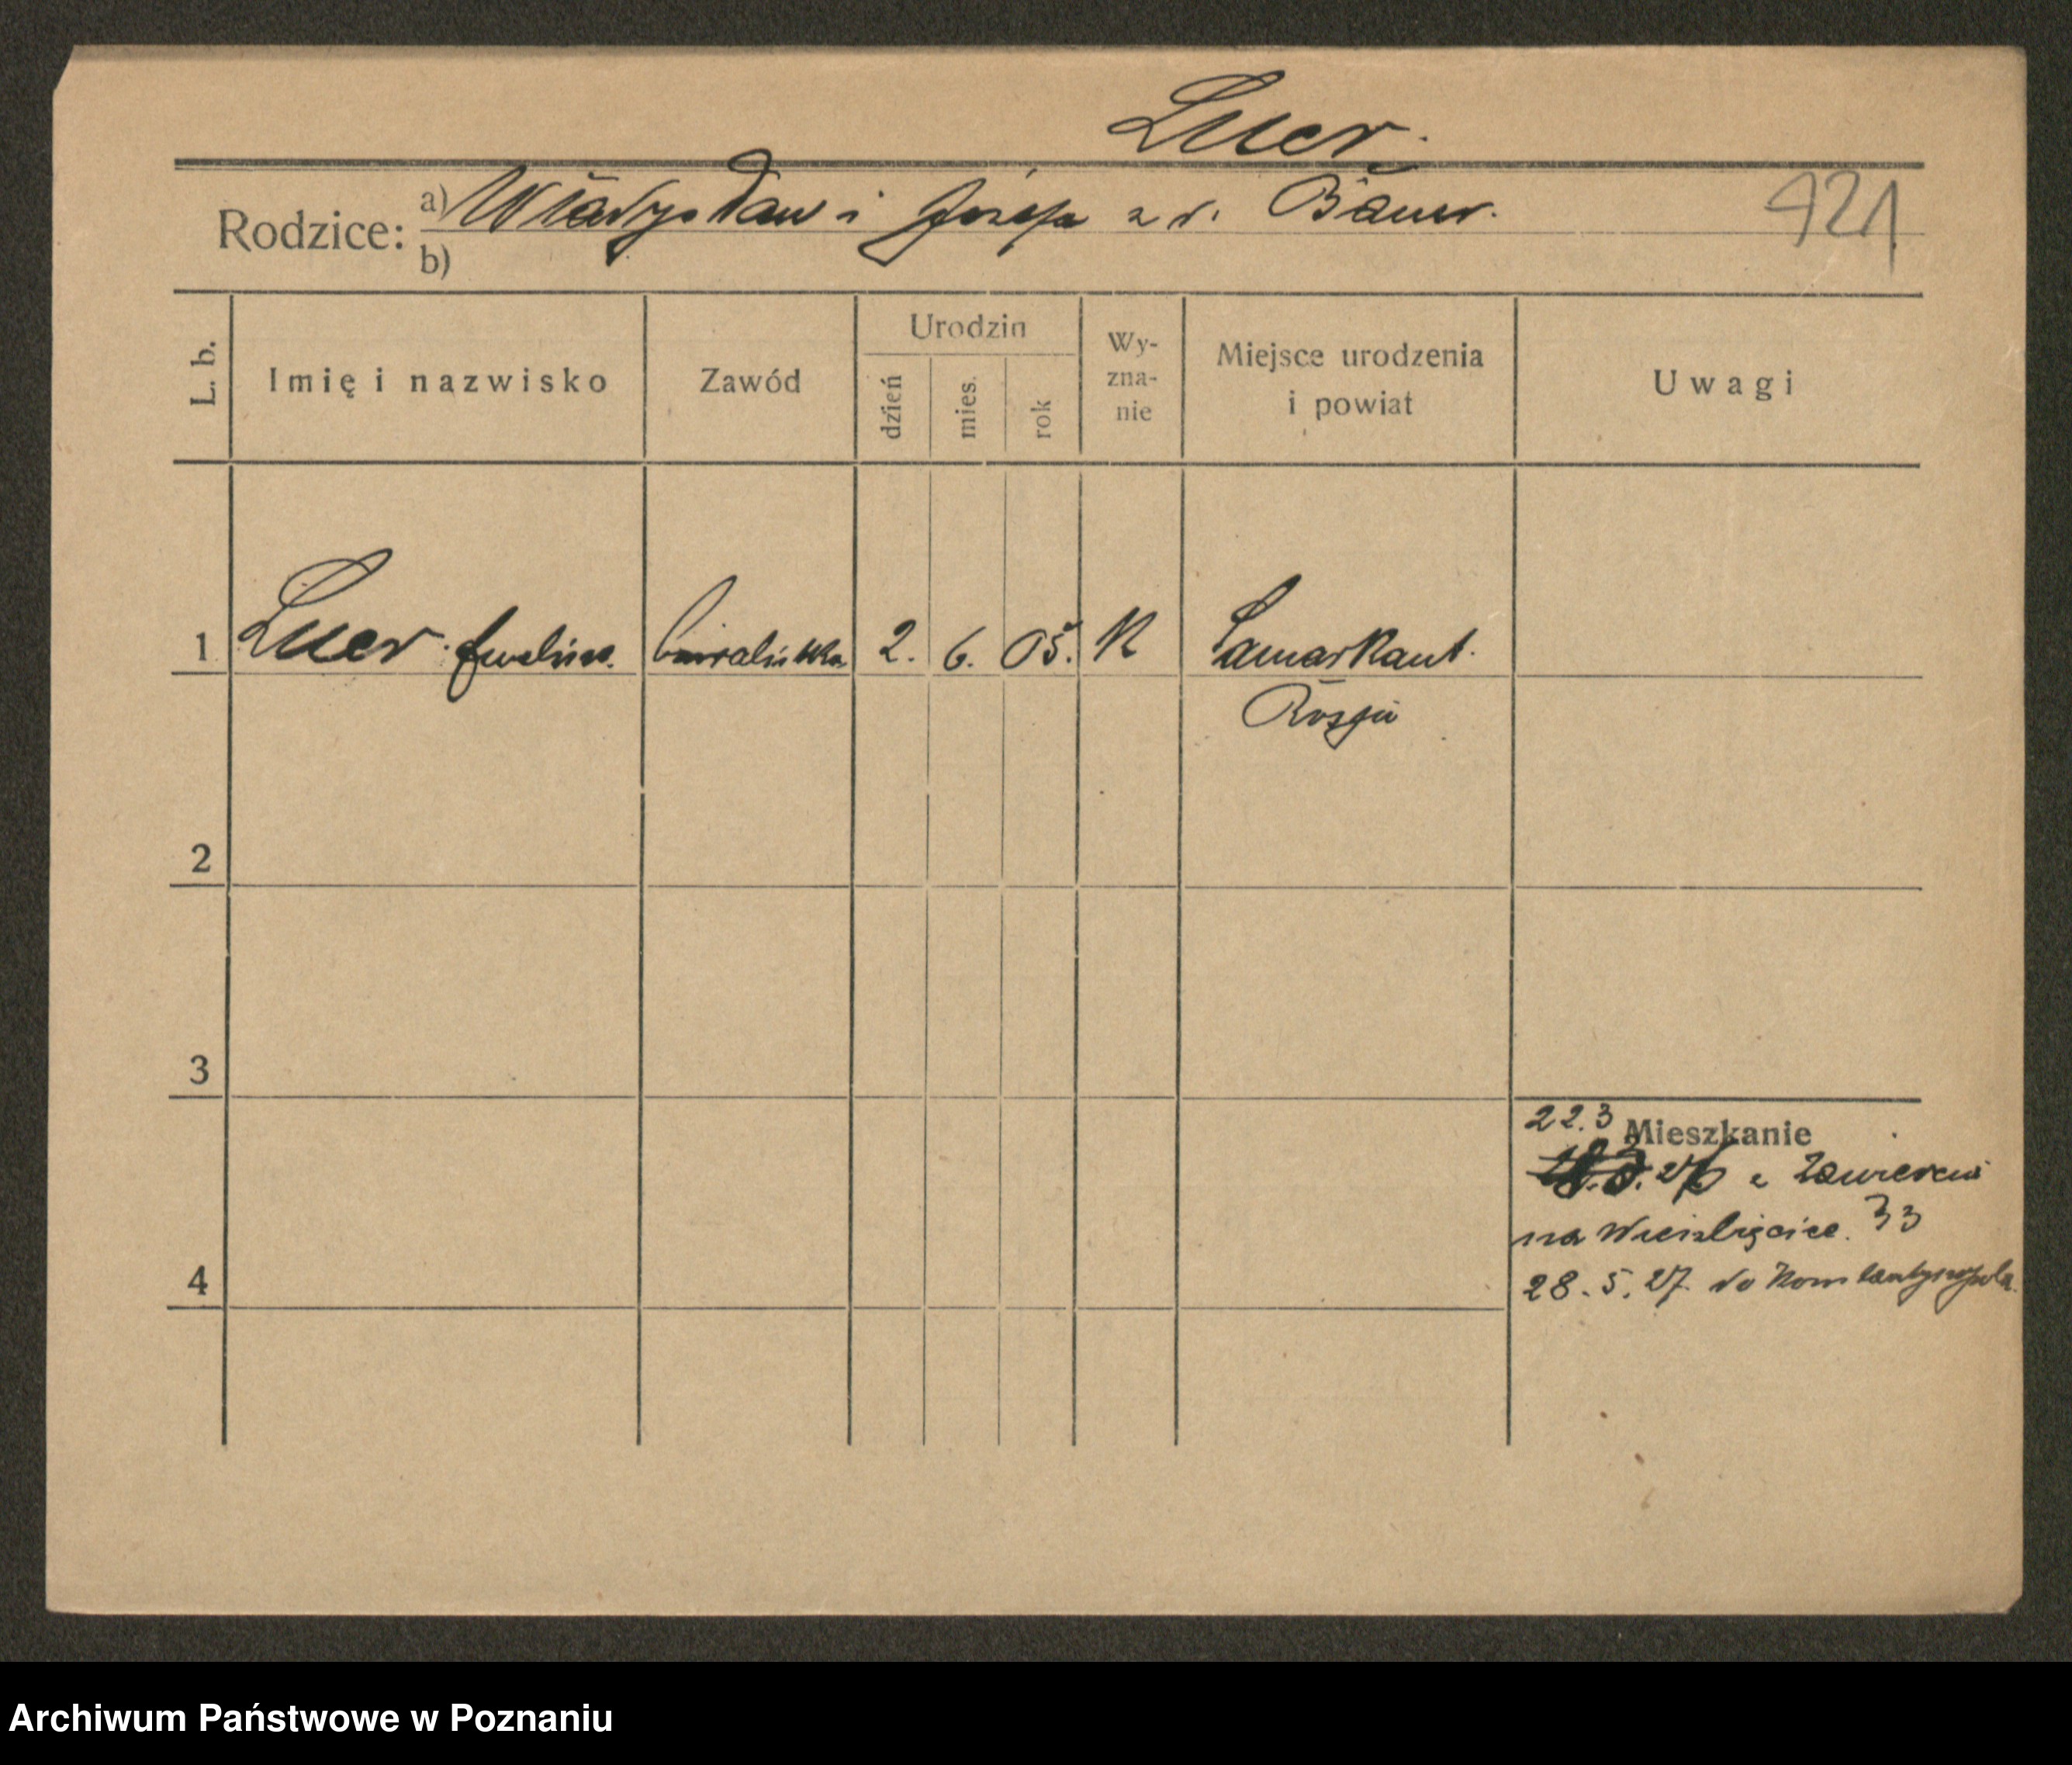 Luer.
Rodzice: a) Władysław i Józefa z d. Bauer.
421
b)
L. b. Imię i nazwisko Zawód Urodzin dzień mies. rok Wy-zna-nie Miejsce urodzenia i powiat Uwagi
1 Luer Ewelina. biuralistka 2. 6. 05. K Samarkant.
Rosja
2
3
22.3 Mieszkanie
26 z Zawiercia
na Wierzbięcice. 33
4
28. 5. 27. do Konstantynopola
Archiwum Państwowe w Poznaniu